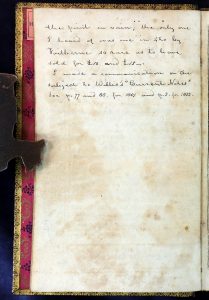 the print in vain; the only one
I heard of was one in 8vo by
Fruitiers so rare as to have
sold for £10. and £20.
I made a communication on the
subject to Willis's "Current Notes"
See pp. 77 and 85. for 1851 and p. 3. for 1852.